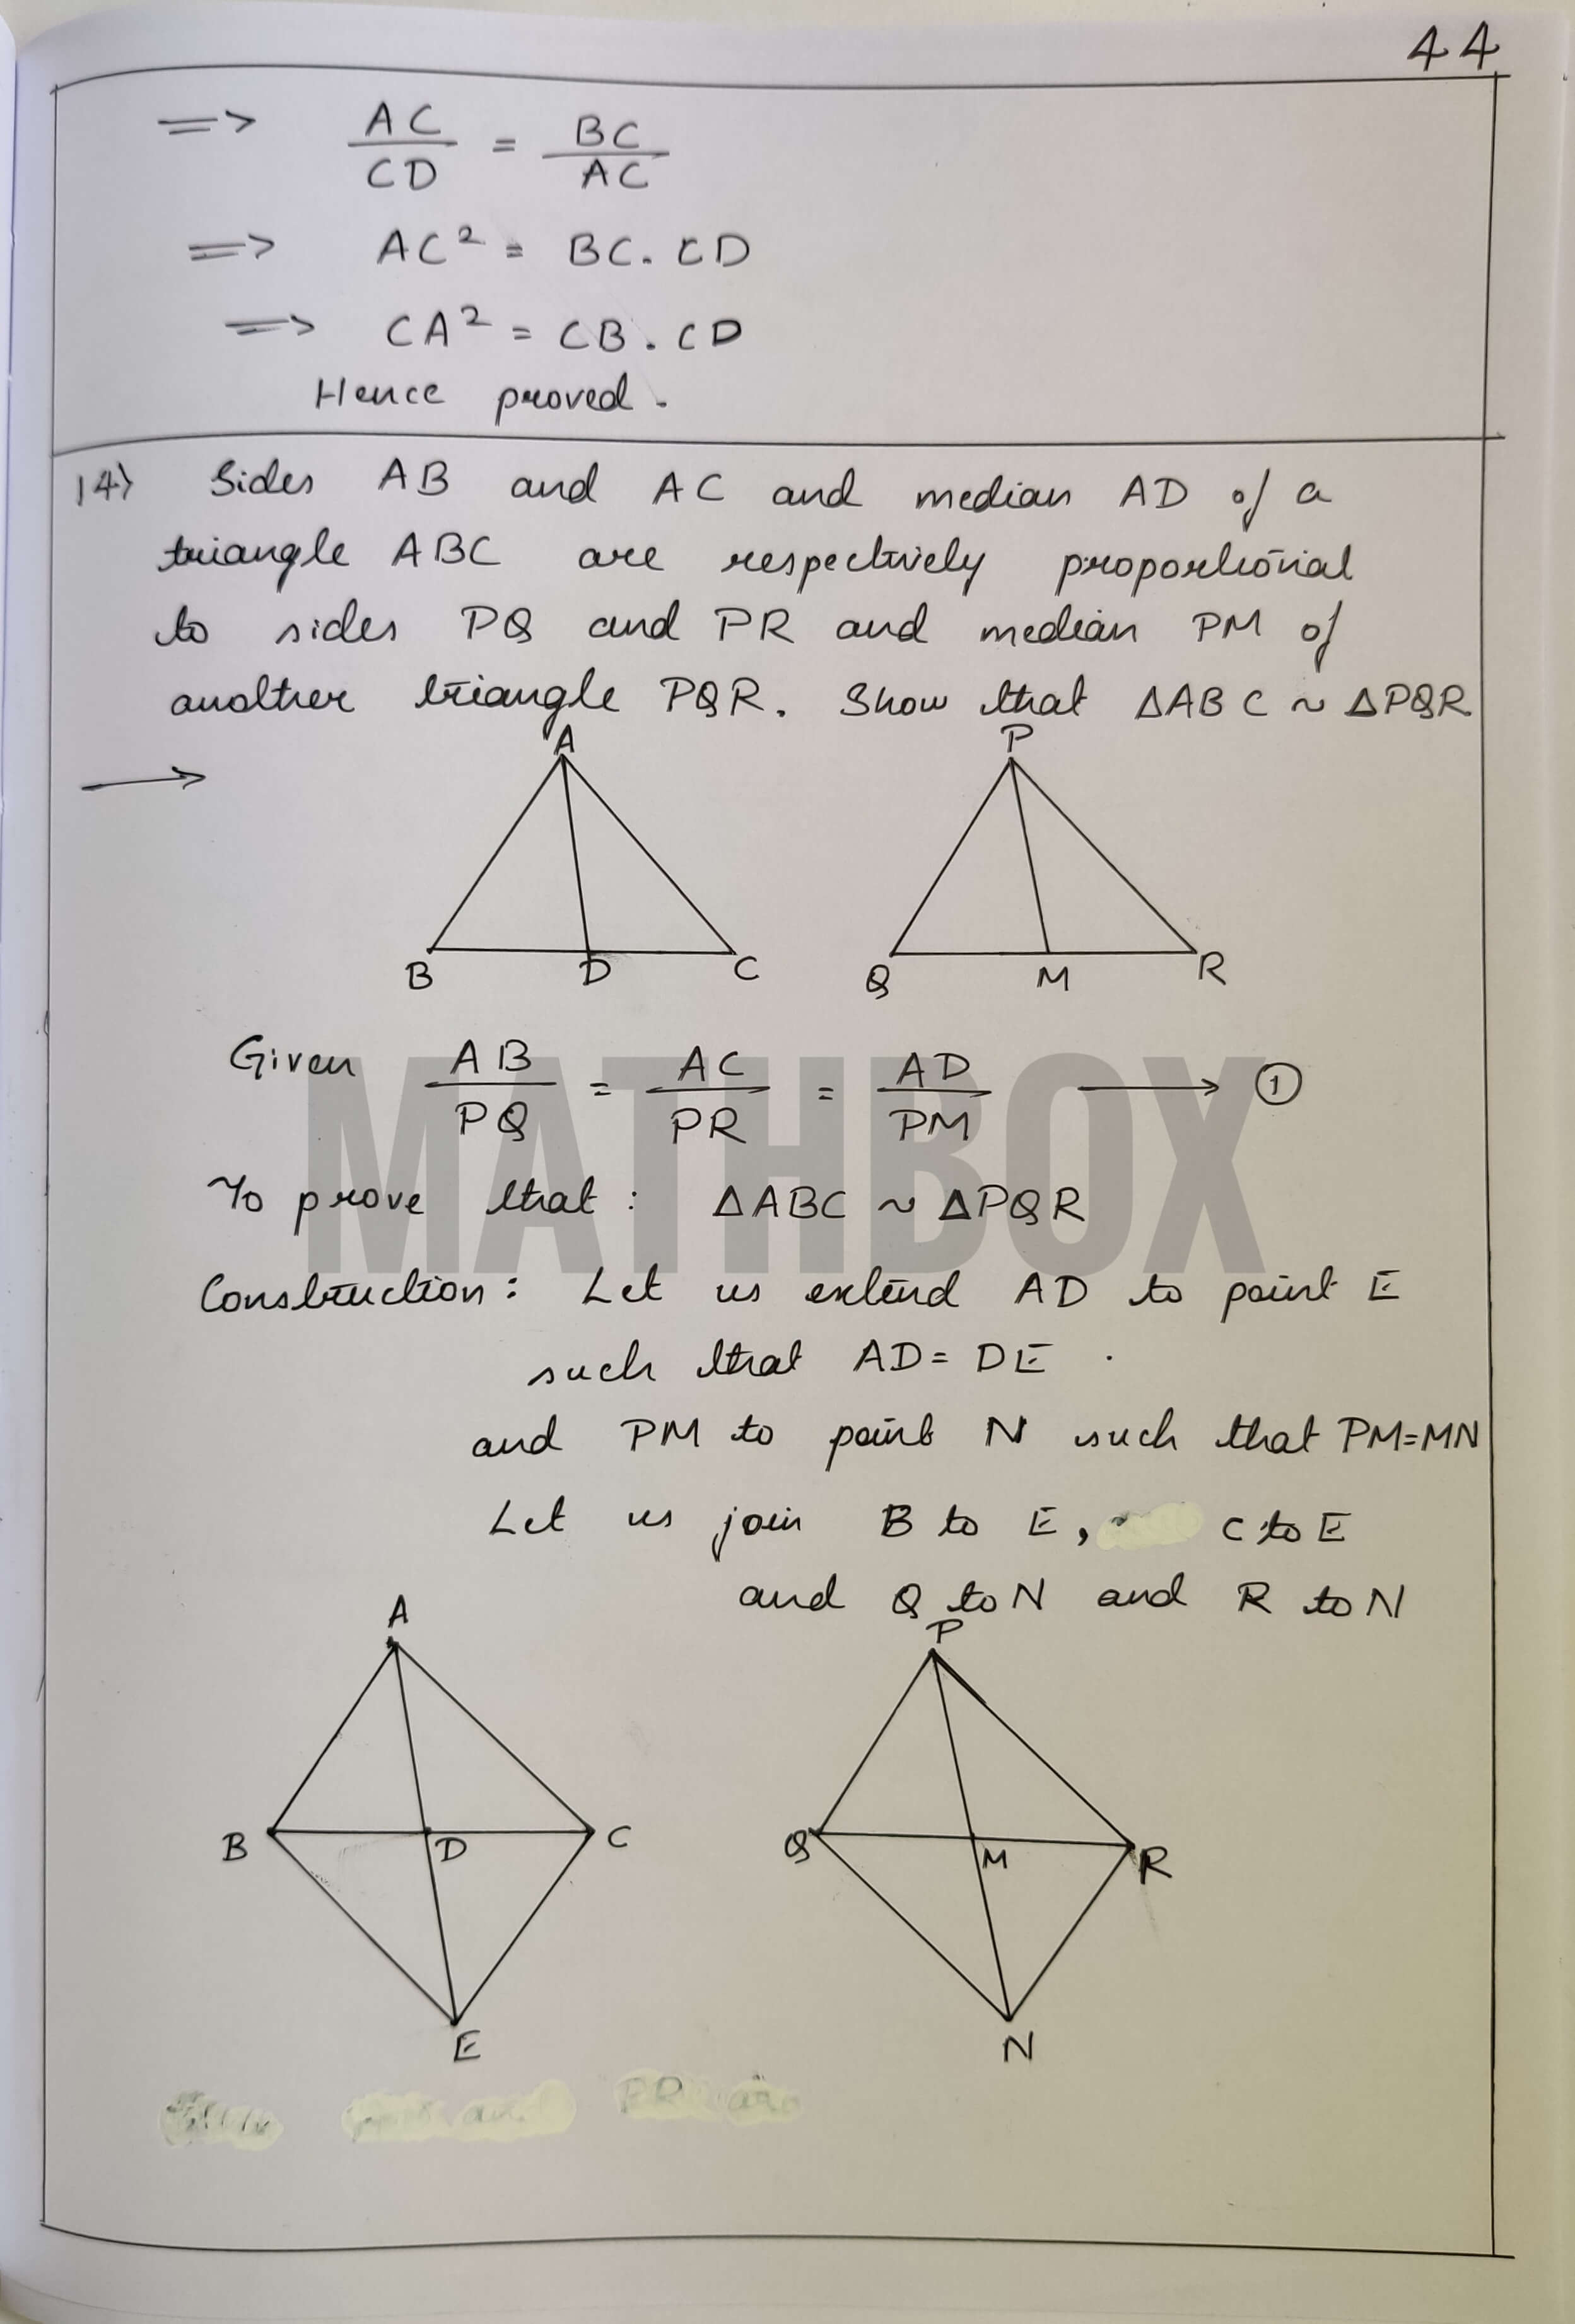 44
=> AC/CD = BC/AC
=> AC² = BC. CD
=> CA² = CB . CD
Hence proved.
14) Sides AB and AC and median AD of a
triangle ABC are respectively proportional
to sides PQ and PR and median PM of
another triangle PQR. Show that ΔABC ~ ΔPQR
A P
B D C Q M R
Given AB/PQ = AC/PR = AD/PM ⟶ ①
MATHBOX
To prove that : ΔABC ~ ΔPQR
Construction: Let us extend AD to point E
such that AD = DE .
and PM to point N such that PM=MN
Let us join B to E, C to E
and Q to N and R to N
A P
B D C Q M R
E N
PR are